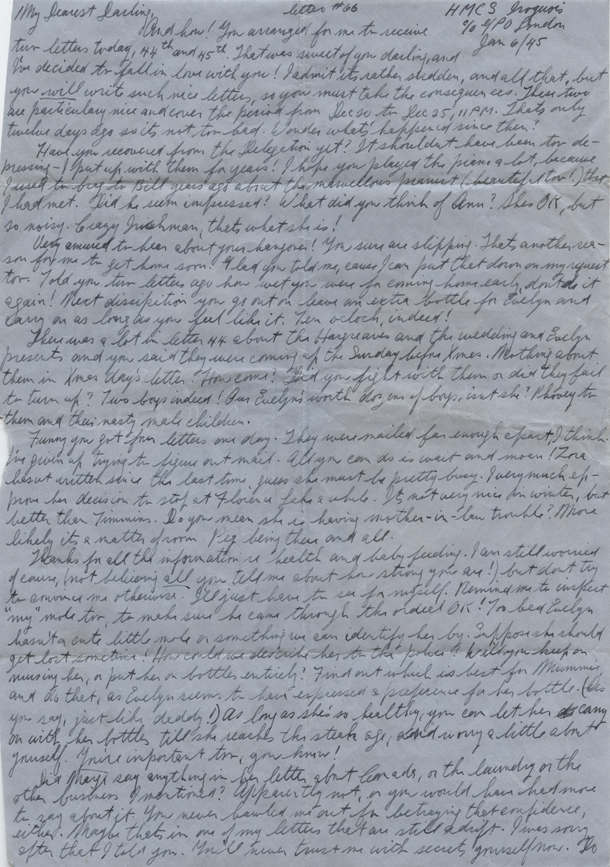 My Dearest Darling, letter #66 HMCS Iroquois
c/o GPO London
Jan 6/45
And how! You arranged for me to receive
two letters today, 44th and 45th. That was sweet of you darling, and
I've decided to fall in love with you! I admit it's rather sudden, and all that, but
you will write such nice letters, so you must take the consequences. These two
are particularly nice and cover the period from Dec 20 to Dec 25, 11 P.M. That's only
twelve days ago so its not too bad. Wonder what's happened since then?
Have you recovered from the Delegation yet? It shouldn't have been too de-
pressing - I put up with them for years! I hope you played the piano a lot, because
I used to brag to Bill years ago about the marvellous pianist (beautiful too!) that
I had met. Did he seem impressed? What did you think of Ann? She's OK, but
so noisy. Crazy Irishman, thats what she is!
Very amused to hear about your hangover! You sure are slipping. That's another rea-
son for me to get home soon! Glad you told me, cause I can put that down on my request
too. Told you two letters ago how wet you were for coming home early, don't do it
again! Next dissipation you go out on leave an extra bottle for Evelyn and
carry on as long as you feel like it. Ten o'clock, indeed!
There was a lot in letter 44 about the Hargreaves and the wedding and Evelyn
presents and you said they were coming up the Sunday before Xmas. Nothing about
them in Xmas day's letter! How come? Did you fight with them or did they fail
to turn up? Two boys indeed! Our Evelyn's worth dozens of boys, isn't she? Phooey to
them and their nasty male children.
Funny you got four letters one day. They were mailed far enough apart, I think.
I've given up trying to figure out mail. All you can do is wait and moan! Zora
hasn't written since the last time, guess she must be pretty busy. I very much ap-
prove her decision to stop at Florence for a while. It's not very nice in winter, but
better than Timmins. Do you mean she is having mother-in-law trouble? More
likely it's a matter of room Peg being there and all.
Thanks for all the information re health and baby feeding. I am still worried
of course, (not believing all you tell me about how strong you are!) but don't try
to convince me otherwise. I'll just have to see for myself. Remind me to inspect
"my" mole too, to make sure he came through the ordeal OK! Too bad Evelyn
hasn't a cute little mole or something we can identify her by. Suppose she should
get lost sometime! How could we describe her to the police? Will you keep on
nursing her, or put her on bottles entirely? Find out which is best for Mummie,
and do that, as Evelyn seems to have expressed a preference for her bottle. (As
you say, just like daddy!) As long as she's so healthy, you can let her carry
on with her bottles till she reaches the steak age, and worry a little about
yourself. You're important too, you know!
Did Marge say anything in her letter about Canada, or the laundry or the
other business I mentioned? Apparently not, or you would have had more
to say about it. You never bawled me out for betraying that confidence,
either. Maybe thats in one of my letters that are still adrift. I was sorry
after that I told you. You'll never trust me with secrets yourself now. So